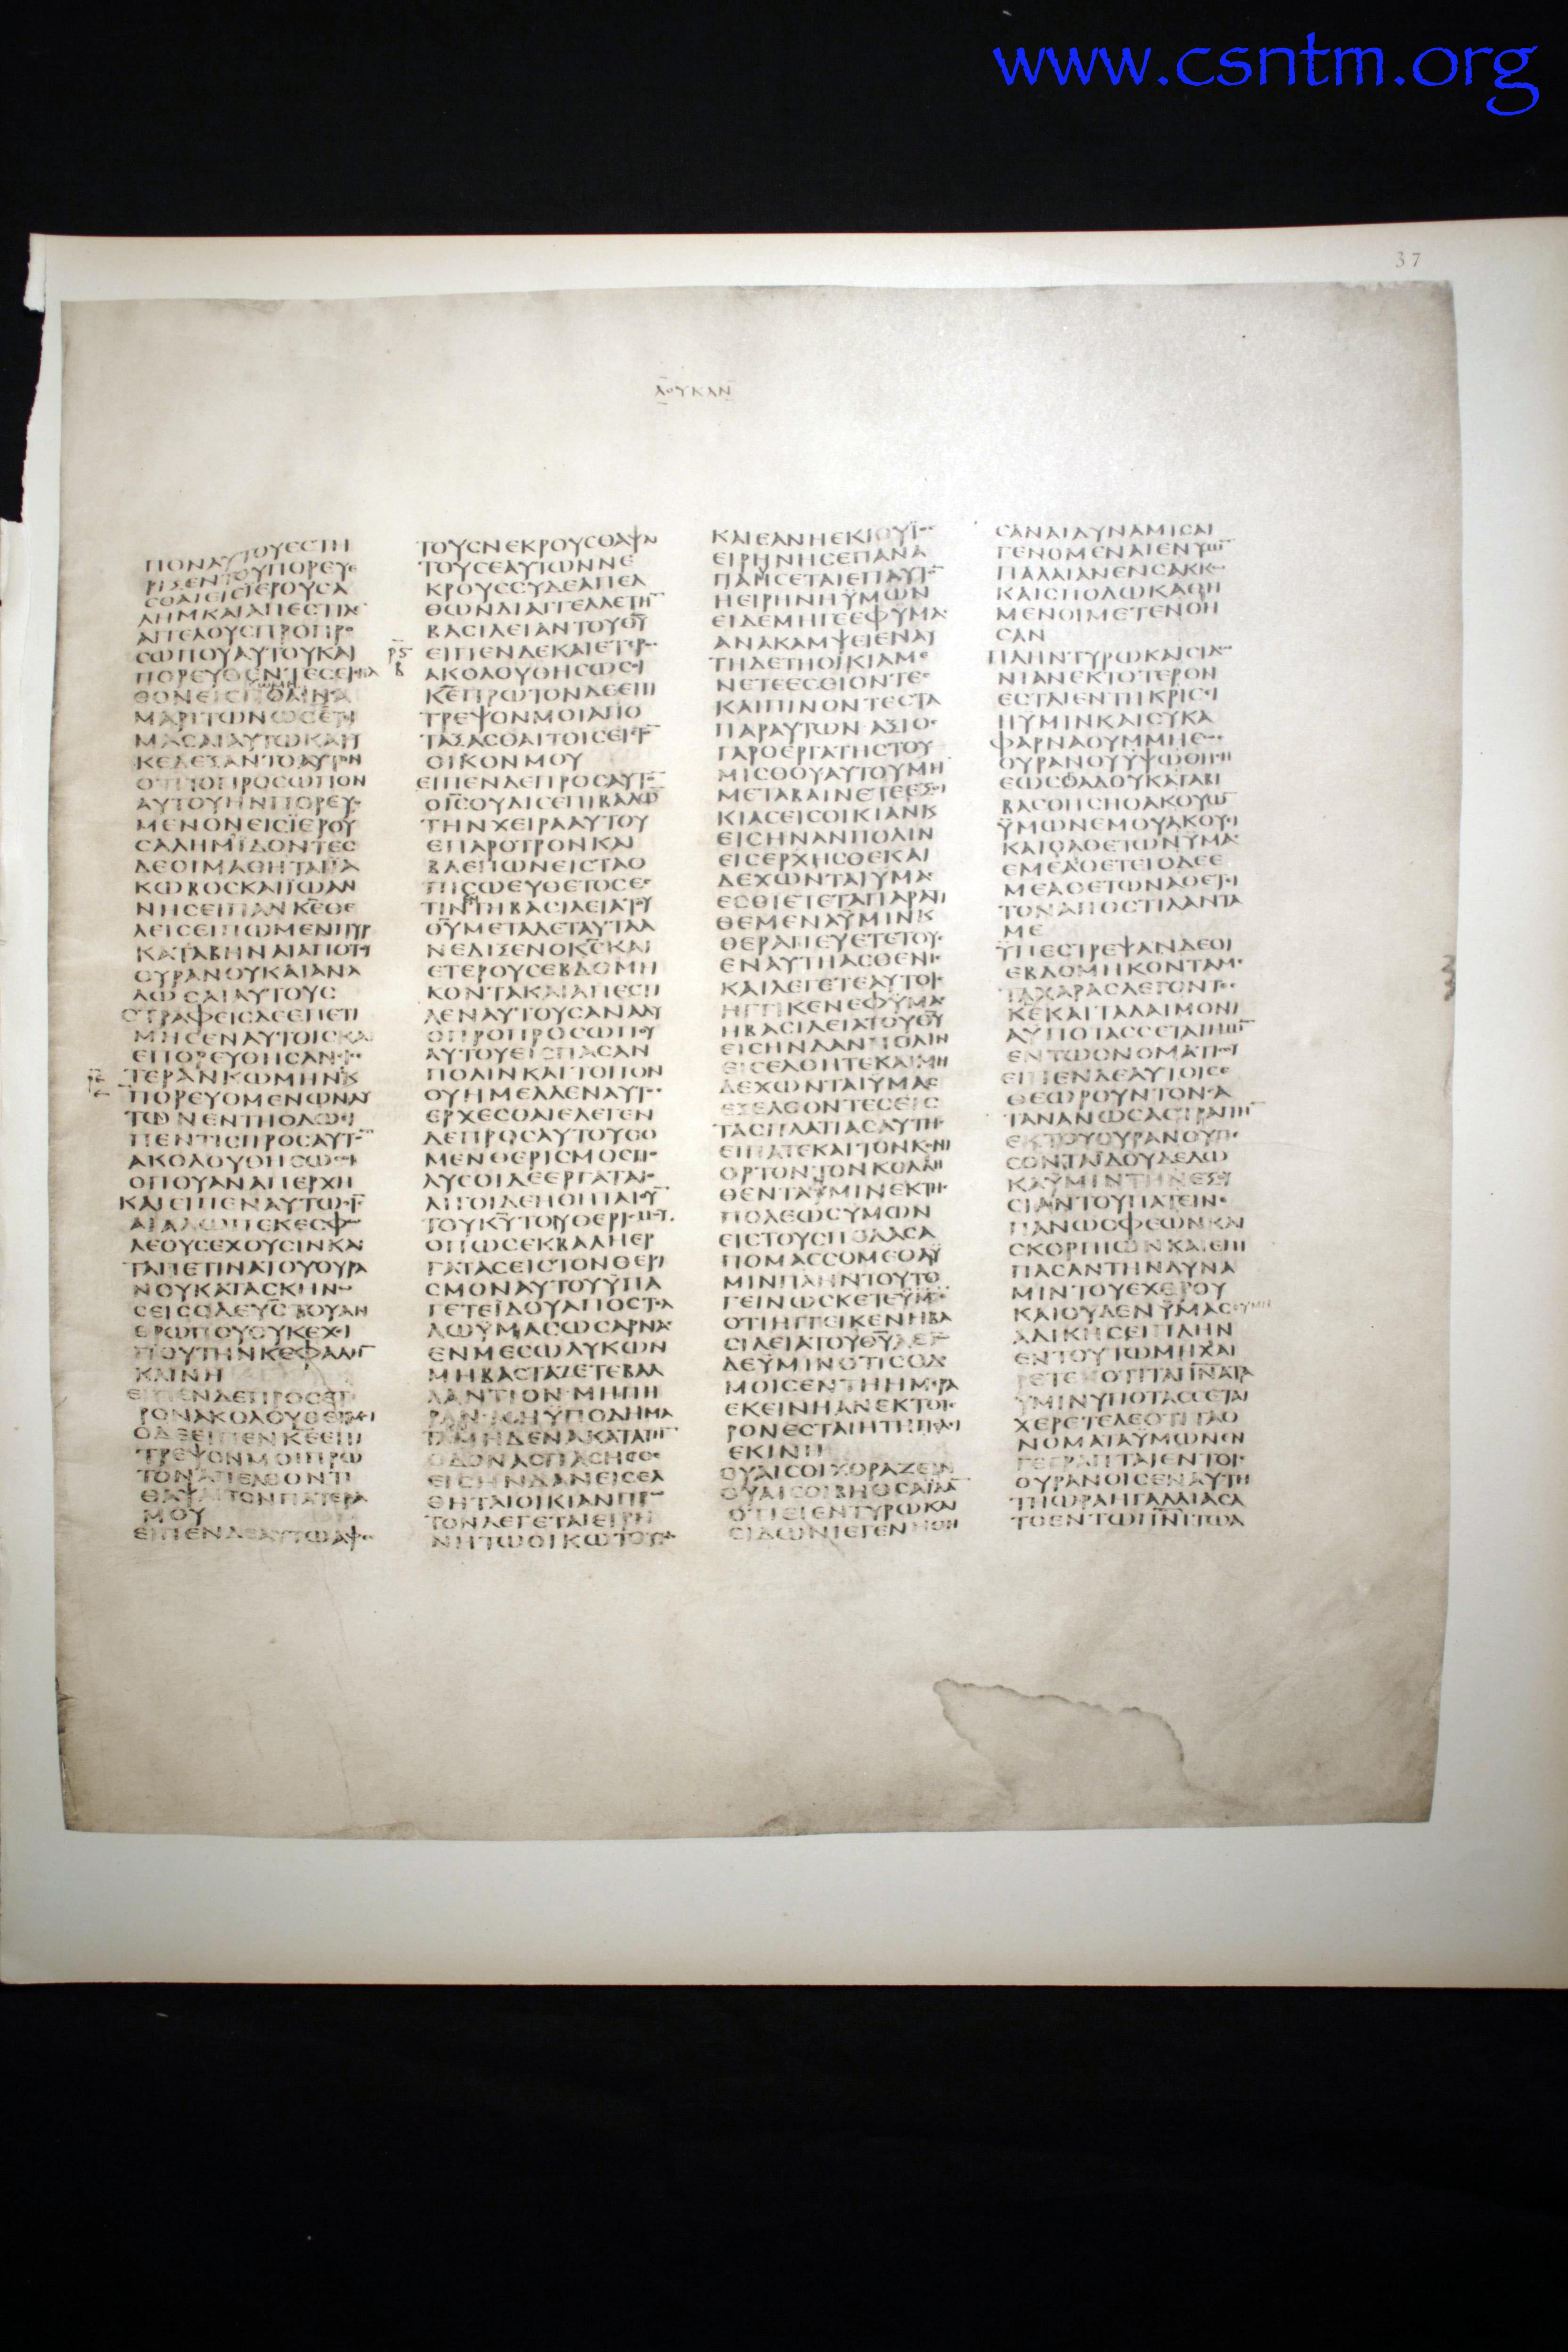 www.csntm.org
37
ΛΟΥΚΑΝ
ΠΟΝΑΥΤΟΥΕϹΤΗ
ΡΙϹΕΝΤΟΥΠΟΡΕΥΕ
ϹΘΑΙΕΙϹΙΕΡΟΥϹΑ
ΛΗΜΚΑΙΑΠΕϹΤΙΛΕ
ΑΓΓΕΛΟΥϹΠΡΟΠΡΟ
ϹΩΠΟΥΑΥΤΟΥΚΑΙ
ΠΟΡΕΥΘΕΝΤΕϹΕΙϹΗΛ
ΘΟΝΕΙϹΠΟΛΙΝ
ΜΑΡΙΤΩΝΩϹΕΤΙ
ΜΑϹΑΙΑΥΤΩΚΑΙΟΥ
ΚΕΔΕΞΑΝΤΟΑΥΤΟΝ
ΟΤΙΤΟΠΡΟϹΩΠΟΝ
ΑΥΤΟΥΗΝΠΟΡΕΥΟ
ΜΕΝΟΝΕΙϹΪΕΡΟΥ
ϹΑΛΗΜΪΔΟΝΤΕϹ
ΔΕΟΙΜΑΘΗΤΑΙΪΑ
ΚΩΒΟϹΚΑΙΪΩΑΝ
ΝΗϹΕΙΠΑΝΚΕΘΕ
ΛΕΙϹΕΙΠΩΜΕΝΠΥΡ
ΚΑΤΑΒΗΝΑΙΑΠΟΤΟΥ
ΟΥΡΑΝΟΥΚΑΙΑΝΑ
ΛΩϹΑΙΑΥΤΟΥϹ
ϹΤΡΑΦΕΙϹΔΕΕΠΕΤΙ
ΜΗϹΕΝΑΥΤΟΙϹΚΑΙ
ΕΠΟΡΕΥΘΗϹΑΝΕΙϹΕ
ΤΕΡΑΝΚΩΜΗΝΚΑΙ
ΠΟΡΕΥΟΜΕΝΩΝΑΥ
ΤΩΝΕΝΤΗΟΔΩΕΙ
ΠΕΝΤΙϹΠΡΟϹΑΥΤΟΝ
ΑΚΟΛΟΥΘΗϹΩϹΟΙ
ΟΠΟΥΑΝΑΠΕΡΧΗ
ΚΑΙΕΙΠΕΝΑΥΤΩΟΙϹ
ΑΙΑΛΩΠΕΚΕϹΦΩ
ΛΕΟΥϹΕΧΟΥϹΙΝΚΑΙ
ΤΑΠΕΤΙΝΑΤΟΥΟΥΡΑ
ΝΟΥΚΑΤΑϹΚΗΝΩ
ϹΕΙϹΟΔΕΥϹΤΟΥΑΝ
ΘΡΩΠΟΥΟΥΚΕΧΕΙ
ΠΟΥΤΗΝΚΕΦΑΛΗΝ
ΚΛΙΝΗ
ΕΙΠΕΝΔΕΠΡΟϹΕΤΕ
ΡΟΝΑΚΟΛΟΥΘΕΙΜΟΙ
ΟΔΕΕΙΠΕΝΚΕΕΠΙ
ΤΡΕΨΟΝΜΟΙΠΡΩ
ΤΟΝΑΠΕΛΘΟΝΤΙ
ΘΑΨΑΙΤΟΝΠΑΤΕΡΑ
ΜΟΥ
ΕΙΠΕΝΔΕΑΥΤΩΑΦΕϹ
ΤΟΥϹΝΕΚΡΟΥϹΘΑΨΑΙ
ΤΟΥϹΕΑΥΤΩΝΝΕ
ΚΡΟΥϹϹΥΔΕΑΠΕΛ
ΘΩΝΔΙΑΓΓΕΛΛΕΤΗΝ
ΒΑϹΙΛΕΙΑΝΤΟΥΘΥ
ΕΙΠΕΝΔΕΚΑΙΕΤΕΡΟϹ
ΑΚΟΛΟΥΘΗϹΩϹΟΙ
ΚΕΠΡΩΤΟΝΔΕΕΠΙ
ΤΡΕΨΟΝΜΟΙΑΠΟ
ΤΑΞΑϹΘΑΙΤΟΙϹΕΙϹΤΟ
ΟΙΚΟΝΜΟΥ
ΕΙΠΕΝΔΕΠΡΟϹΑΥΤΟΝ
ΟΙϹΟΥΔΙϹΕΠΙΒΑΛΩ
ΤΗΝΧΕΙΡΑΑΥΤΟΥ
ΕΠΑΡΟΤΡΟΝΚΑΙ
ΒΛΕΠΩΝΕΙϹΤΑΟ
ΠΙϹΩΕΥΘΕΤΟϹΕϹ
ΤΙΝΤΗΒΑϹΙΛΕΙΑΤΟΥ
ΘΥΜΕΤΑΔΕΤΑΥΤΑΑ
ΝΕΔΙΞΕΝΟΚϹΚΑΙ
ΕΤΕΡΟΥϹΕΒΔΟΜΗ
ΚΟΝΤΑΚΑΙΑΠΕϹΤΙ
ΛΕΝΑΥΤΟΥϹΑΝΑΔΥ
ΟΠΡΟΠΡΟϹΩΠΟΥ
ΑΥΤΟΥΕΙϹΠΑϹΑΝ
ΠΟΛΙΝΚΑΙΤΟΠΟΝ
ΟΥΗΜΕΛΛΕΝΑΥΤΟϹ
ΕΡΧΕϹΘΑΙΕΛΕΓΕΝ
ΔΕΠΡΟϹΑΥΤΟΥϹΟ
ΜΕΝΘΕΡΙϹΜΟϹΠΟ
ΛΥϹΟΙΔΕΕΡΓΑΤΑΙΟ
ΛΙΓΟΙΔΕΗΘΗΤΑΙΟΥ
ΤΟΥΚΥΤΟΥΘΕΡΙϹΜΟΥ
ΟΠΩϹΕΚΒΑΛΗΕΡ
ΓΑΤΑϹΕΙϹΤΟΝΘΕΡΙ
ϹΜΟΝΑΥΤΟΥΫΠΑ
ΓΕΤΕΪΔΟΥΑΠΟϹΤΕΛ
ΛΩΫΜΑϹΩϹΑΡΝΑϹ
ΕΝΜΕϹΩΛΥΚΩΝ
ΜΗΒΑϹΤΑΖΕΤΕΒΑΛ
ΛΑΝΤΙΟΝΜΗΠΗ
ΡΑΝΜΗΫΠΟΔΗΜΑ
ΤΑΜΗΔΕΝΑΚΑΤΑΤΗΝ
ΟΔΟΝΑϹΠΑϹΗϹΘΕ
ΕΙϹΗΝΔΑΝΕΙϹΕΛ
ΘΗΤΑΙΟΙΚΙΑΝΠΡΩ
ΤΟΝΛΕΓΕΤΑΙΕΙΡΗ
ΝΗΤΩΟΙΚΩΤΟΥΤΩ
ΚΑΙΕΑΝΗΕΚΙΟΥΪΟϹ
ΕΙΡΗΝΗϹΕΠΑΝΑ
ΠΑΗϹΕΤΑΙΕΠΑΥΤΟΝ
ΗΕΙΡΗΝΗΫΜΩΝ
ΕΙΔΕΜΗΓΕΕΦΫΜΑϹ
ΑΝΑΚΑΜΨΕΙΕΝΑΥ
ΤΗΔΕΤΗΟΙΚΙΑΜΕ
ΝΕΤΕΕϹΘΙΟΝΤΕϹ
ΚΑΙΠΙΝΟΝΤΕϹΤΑ
ΠΑΡΑΥΤΩΝΑΞΙΟϹ
ΓΑΡΟΕΡΓΑΤΗϹΤΟΥ
ΜΙϹΘΟΥΑΥΤΟΥΜΗ
ΜΕΤΑΒΑΙΝΕΤΕΕΞΟΙ
ΚΙΑϹΕΙϹΟΙΚΙΑΝΚΑΙ
ΕΙϹΗΝΑΝΠΟΛΙΝ
ΕΙϹΕΡΧΗϹΘΕΚΑΙ
ΔΕΧΩΝΤΑΙΥΜΑϹ
ΕϹΘΙΕΤΕΤΑΠΑΡΑΤΙ
ΘΕΜΕΝΑΫΜΙΝΚΑΙ
ΘΕΡΑΠΕΥΕΤΕΤΟΥϹ
ΕΝΑΥΤΗΑϹΘΕΝΙϹ
ΚΑΙΛΕΓΕΤΕΑΥΤΟΙϹ
ΗΓΓΙΚΕΝΕΦΥΜΑϹ
ΗΒΑϹΙΛΕΙΑΤΟΥΘΥ
ΕΙϹΗΝΔΑΝΠΟΛΙΝ
ΕΙϹΕΛΘΗΤΕΚΑΙΜΗ
ΔΕΧΩΝΤΑΙΥΜΑϹ
ΕΞΕΛΘΟΝΤΕϹΕΙϹ
ΤΑϹΠΛΑΤΙΑϹΑΥΤΗϹ
ΕΙΠΑΤΕΚΑΙΤΟΝΚΟΝΙ
ΟΡΤΟΝΤΟΝΚΟΛΛΗ
ΘΕΝΤΑΫΜΙΝΕΚΤΗϹ
ΠΟΛΕΩϹΥΜΩΝ
ΕΙϹΤΟΥϹΠΟΔΑϹΑ
ΠΟΜΑϹϹΟΜΕΘΑΫ
ΜΙΝΠΛΗΝΤΟΥΤΟ
ΓΕΙΝΩϹΚΕΤΕ
ΟΤΙΗΓΓΕΙΚΕΝΗΒΑ
ϹΙΛΕΙΑΤΟΥΘΥΛΕΓΩ
ΔΕΫΜΙΝΟΤΙϹΟΔΟ
ΜΟΙϹΕΝΤΗΗΜΕΡΑ
ΕΚΕΙΝΗΑΝΕΚΤΟΤΕ
ΡΟΝΕϹΤΑΙΗΤΗΠΟΛΙ
ΕΚΙΝΗ
ΟΥΑΙϹΟΙΧΟΡΑΖΕΙΝ
ΟΥΑΙϹΟΙΒΗΘϹΑΪΔΑ
ΟΤΙΕΙΕΝΤΥΡΩΚΑΙ
ϹΙΔΩΝΙΕΓΕΝΗΘΗ
ϹΑΝΑΙΔΥΝΑΜΙϹΑΙ
ΓΕΝΟΜΕΝΑΙΕΝΥΜΙΝ
ΠΑΛΑΙΑΝΕΝϹΑΚΚΩ
ΚΑΙϹΠΟΔΩΚΑΘΗ
ΜΕΝΟΙΜΕΤΕΝΟΗ
ϹΑΝ
ΠΛΗΝΤΥΡΩΚΑΙϹΙΔΩ
ΝΙΑΝΕΚΤΟΤΕΡΟΝ
ΕϹΤΑΙΕΝΤΗΚΡΙϹΕΙ
ΗΥΜΙΝΚΑΙϹΥΚΑ
ΦΑΡΝΑΟΥΜΜΗΕΩϹ
ΟΥΡΑΝΟΥΫΨΩΘΗϹΗ
ΕΩϹΟΑΔΟΥΚΑΤΑΒΙ
ΒΑϹΘΗϹΗΟΑΚΟΥΩΝ
ΫΜΩΝΕΜΟΥΑΚΟΥΕΙ
ΚΑΙΟΑΘΕΤΩΝΫΜΑϹ
ΕΜΕΑΘΕΤΕΙΟΔΕΕ
ΜΕΑΘΕΤΩΝΑΘΕΤΕΙ
ΤΟΝΑΠΟϹΤΙΛΑΝΤΑ
ΜΕ
ΫΠΕϹΤΡΕΨΑΝΔΕΟΙ
ΕΒΔΟΜΗΚΟΝΤΑΜΕ
ΤΑΧΑΡΑϹΛΕΓΟΝΤΕϹ
ΚΕΚΑΙΤΑΔΑΙΜΟΝΙ
ΑΫΠΟΤΑϹϹΕΤΑΙΗΜΙΝ
ΕΝΤΩΟΝΟΜΑΤΙϹΟΥ
ΕΙΠΕΝΔΕΑΥΤΟΙϹΕ
ΘΕΩΡΟΥΝΤΟΝϹΑ
ΤΑΝΑΝΩϹΑϹΤΡΑΠΗΝ
ΕΚΤΟΥΟΥΡΑΝΟΥΠΕ
ϹΟΝΤΑΪΔΟΥΔΕΔΩ
ΚΑΫΜΙΝΤΗΝΕΞΟΥ
ϹΙΑΝΤΟΥΠΑΤΕΙΝΕ
ΠΑΝΩΟΦΕΩΝΚΑΙ
ϹΚΟΡΠΙΩΝΚΑΙΕΠΙ
ΠΑϹΑΝΤΗΝΔΥΝΑ
ΜΙΝΤΟΥΕΧΘΡΟΥ
ΚΑΙΟΥΔΕΝΫΜΑϹ
ΑΔΙΚΗϹΕΙΠΛΗΝ
ΕΝΤΟΥΤΩΜΗΧΑΙ
ΡΕΤΕΟΤΙΤΑΠΝΑΤΑ
ΥΜΙΝΥΠΟΤΑϹϹΕΤΑΙ
ΧΕΡΕΤΕΔΕΟΤΙΤΑΟ
ΝΟΜΑΤΑΫΜΩΝΕΝ
ΓΕΓΡΑΠΤΑΙΕΝΤΟΙϹ
ΟΥΡΑΝΟΙϹΕΝΑΥΤΗ
ΤΗΩΡΑΗΓΑΛΛΙΑϹΑ
ΤΟΕΝΤΩΠΝΙΤΩΑ